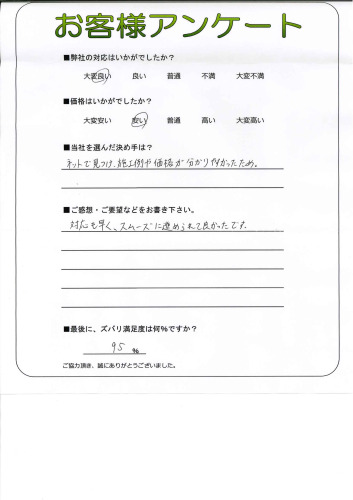 お客様アンケート
■弊社の対応はいかがでしたか?
大変良い 良い 普通 不満 大変不満
■価格はいかがでしたか?
大変安い 安い 普通 高い 大変高い
■当社を選んだ決め手は?
ネットで見つけ、施工例や価格が分かり易かったため。
■ご感想・ご要望などをお書き下さい。
対応も早く、スムーズに進められて良かったです。
■最後に、ズバリ満足度は何%ですか?
95 %
ご協力頂き、誠にありがとうございました。